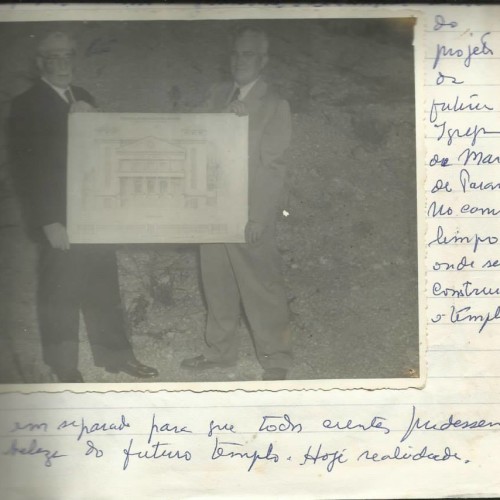 do
projeto
da
futura
Igreja
de Mar
de Paran
No cam
limpo
onde se
constru
o templ
em separado para que todos crentes pudessem
beleza do futuro templo. Hoje realidade.